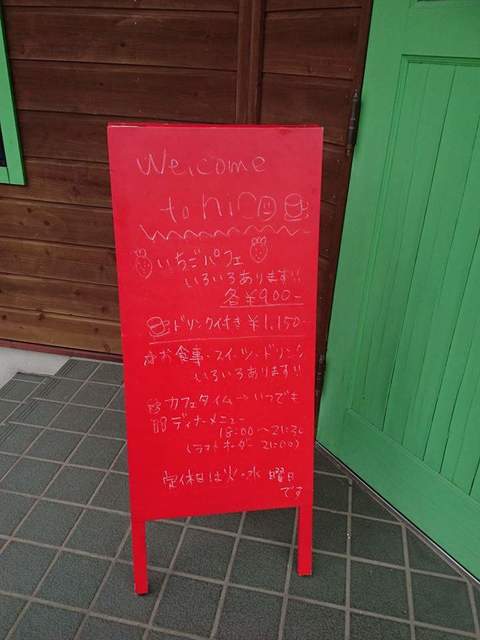 Welcome
to nico
いちごパフェ
いろいろあります!!
各¥900-
ドリンク付き ¥1,150-
お食事・スイーツ・ドリンク
いろいろあります!!
カフェタイム→いつでも
ディナーメニュー
18:00〜21:30
(ラストオーダー 21:00)
定休日は火・水 曜日
です